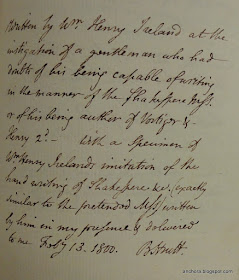 Written by Wm Henry Ireland at the
instigation of a gentleman who had
doubts of his being capable of writing
in the manner of the Shakspere Mss.
or of his being author of Vortiger &
Henry 2d. — With a Specimen of
Wm Henry Irelands imitation of the
hand writing of Shakspere &c, exactly
similar to the pretended Mss, written
by him in my presence & delivered
to me Feby 13. 1800. B Strutt
anchora.blogspot.com